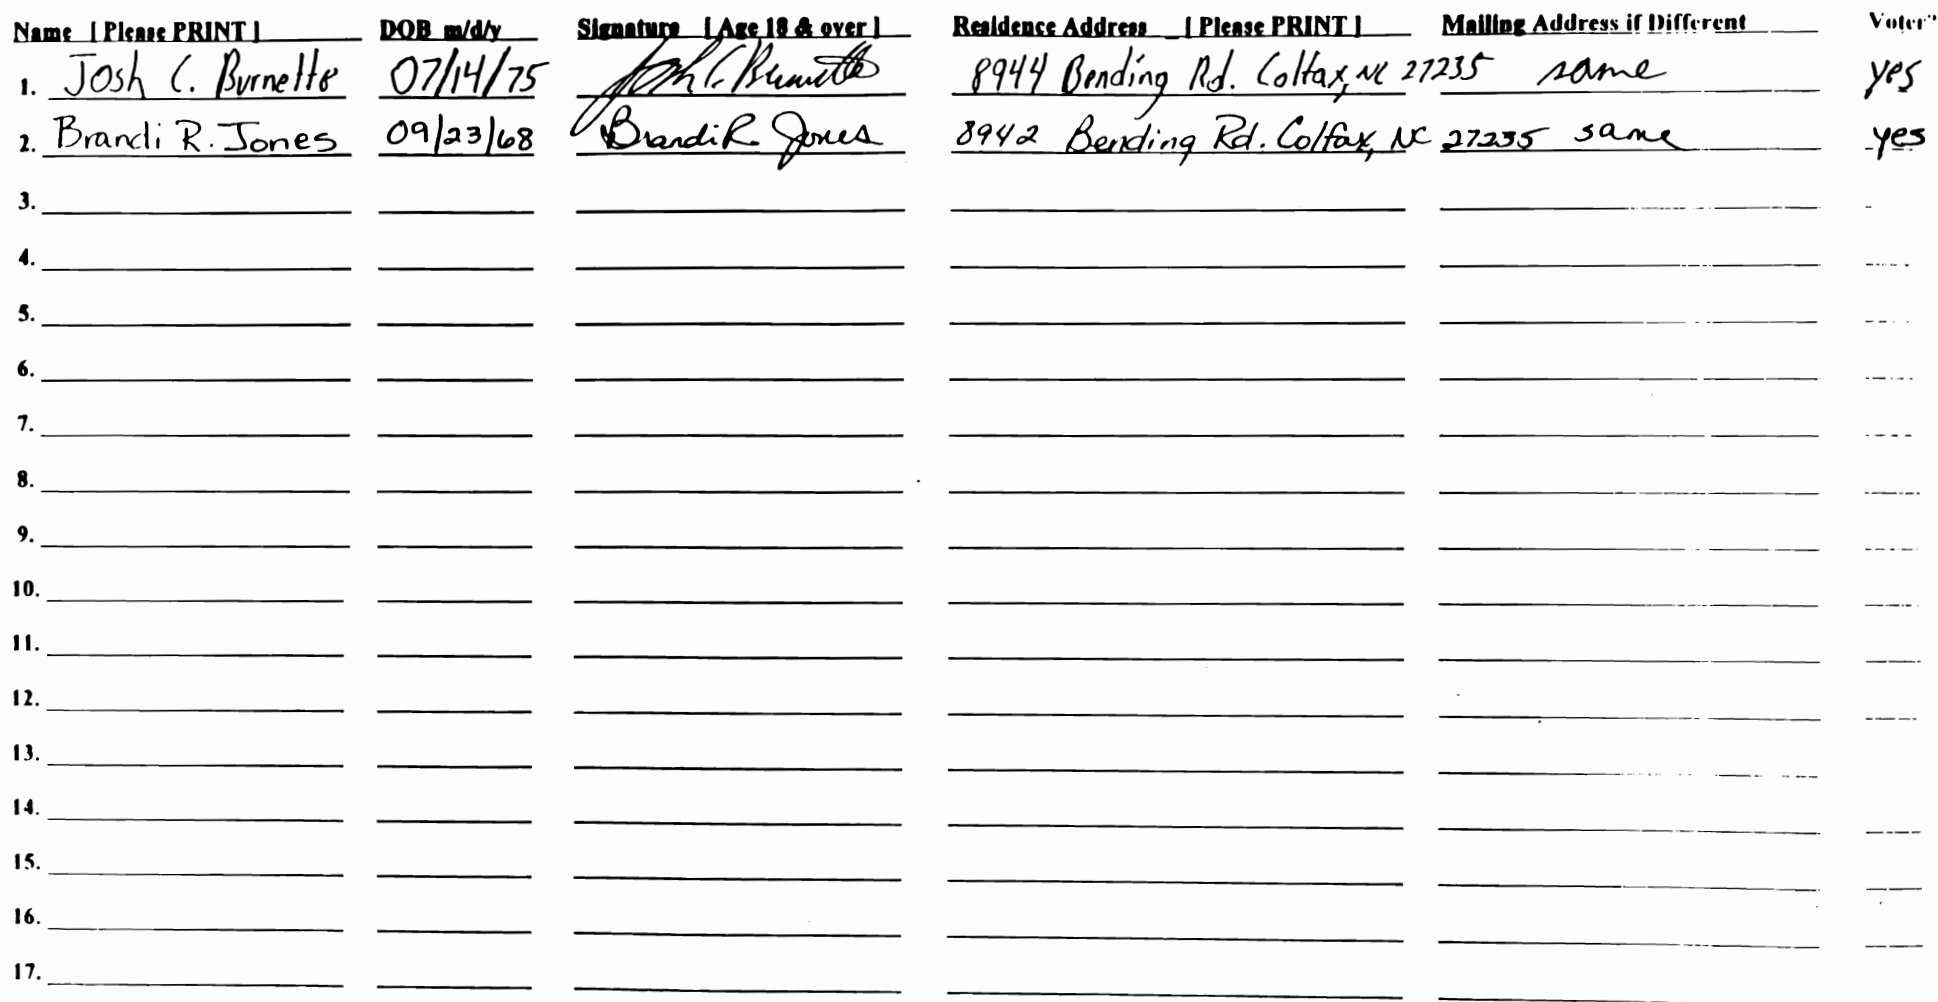 Name [ Please PRINT ] DOB m/d/y Signature [ Age 18 & over ] Residence Address [ Please PRINT ] Mailing Address if Different Voter?
1. Josh C. Burnette 07/14/75 Josh C. Burnette 8944 Bending Rd. Colfax, NC 27235 same yes
2. Brandi R. Jones 09/23/68 Brandi R. Jones 8942 Bending Rd. Colfax, NC 27235 same yes
3.
4.
5.
6.
7.
8.
9.
10.
11.
12.
13.
14.
15.
16.
17.